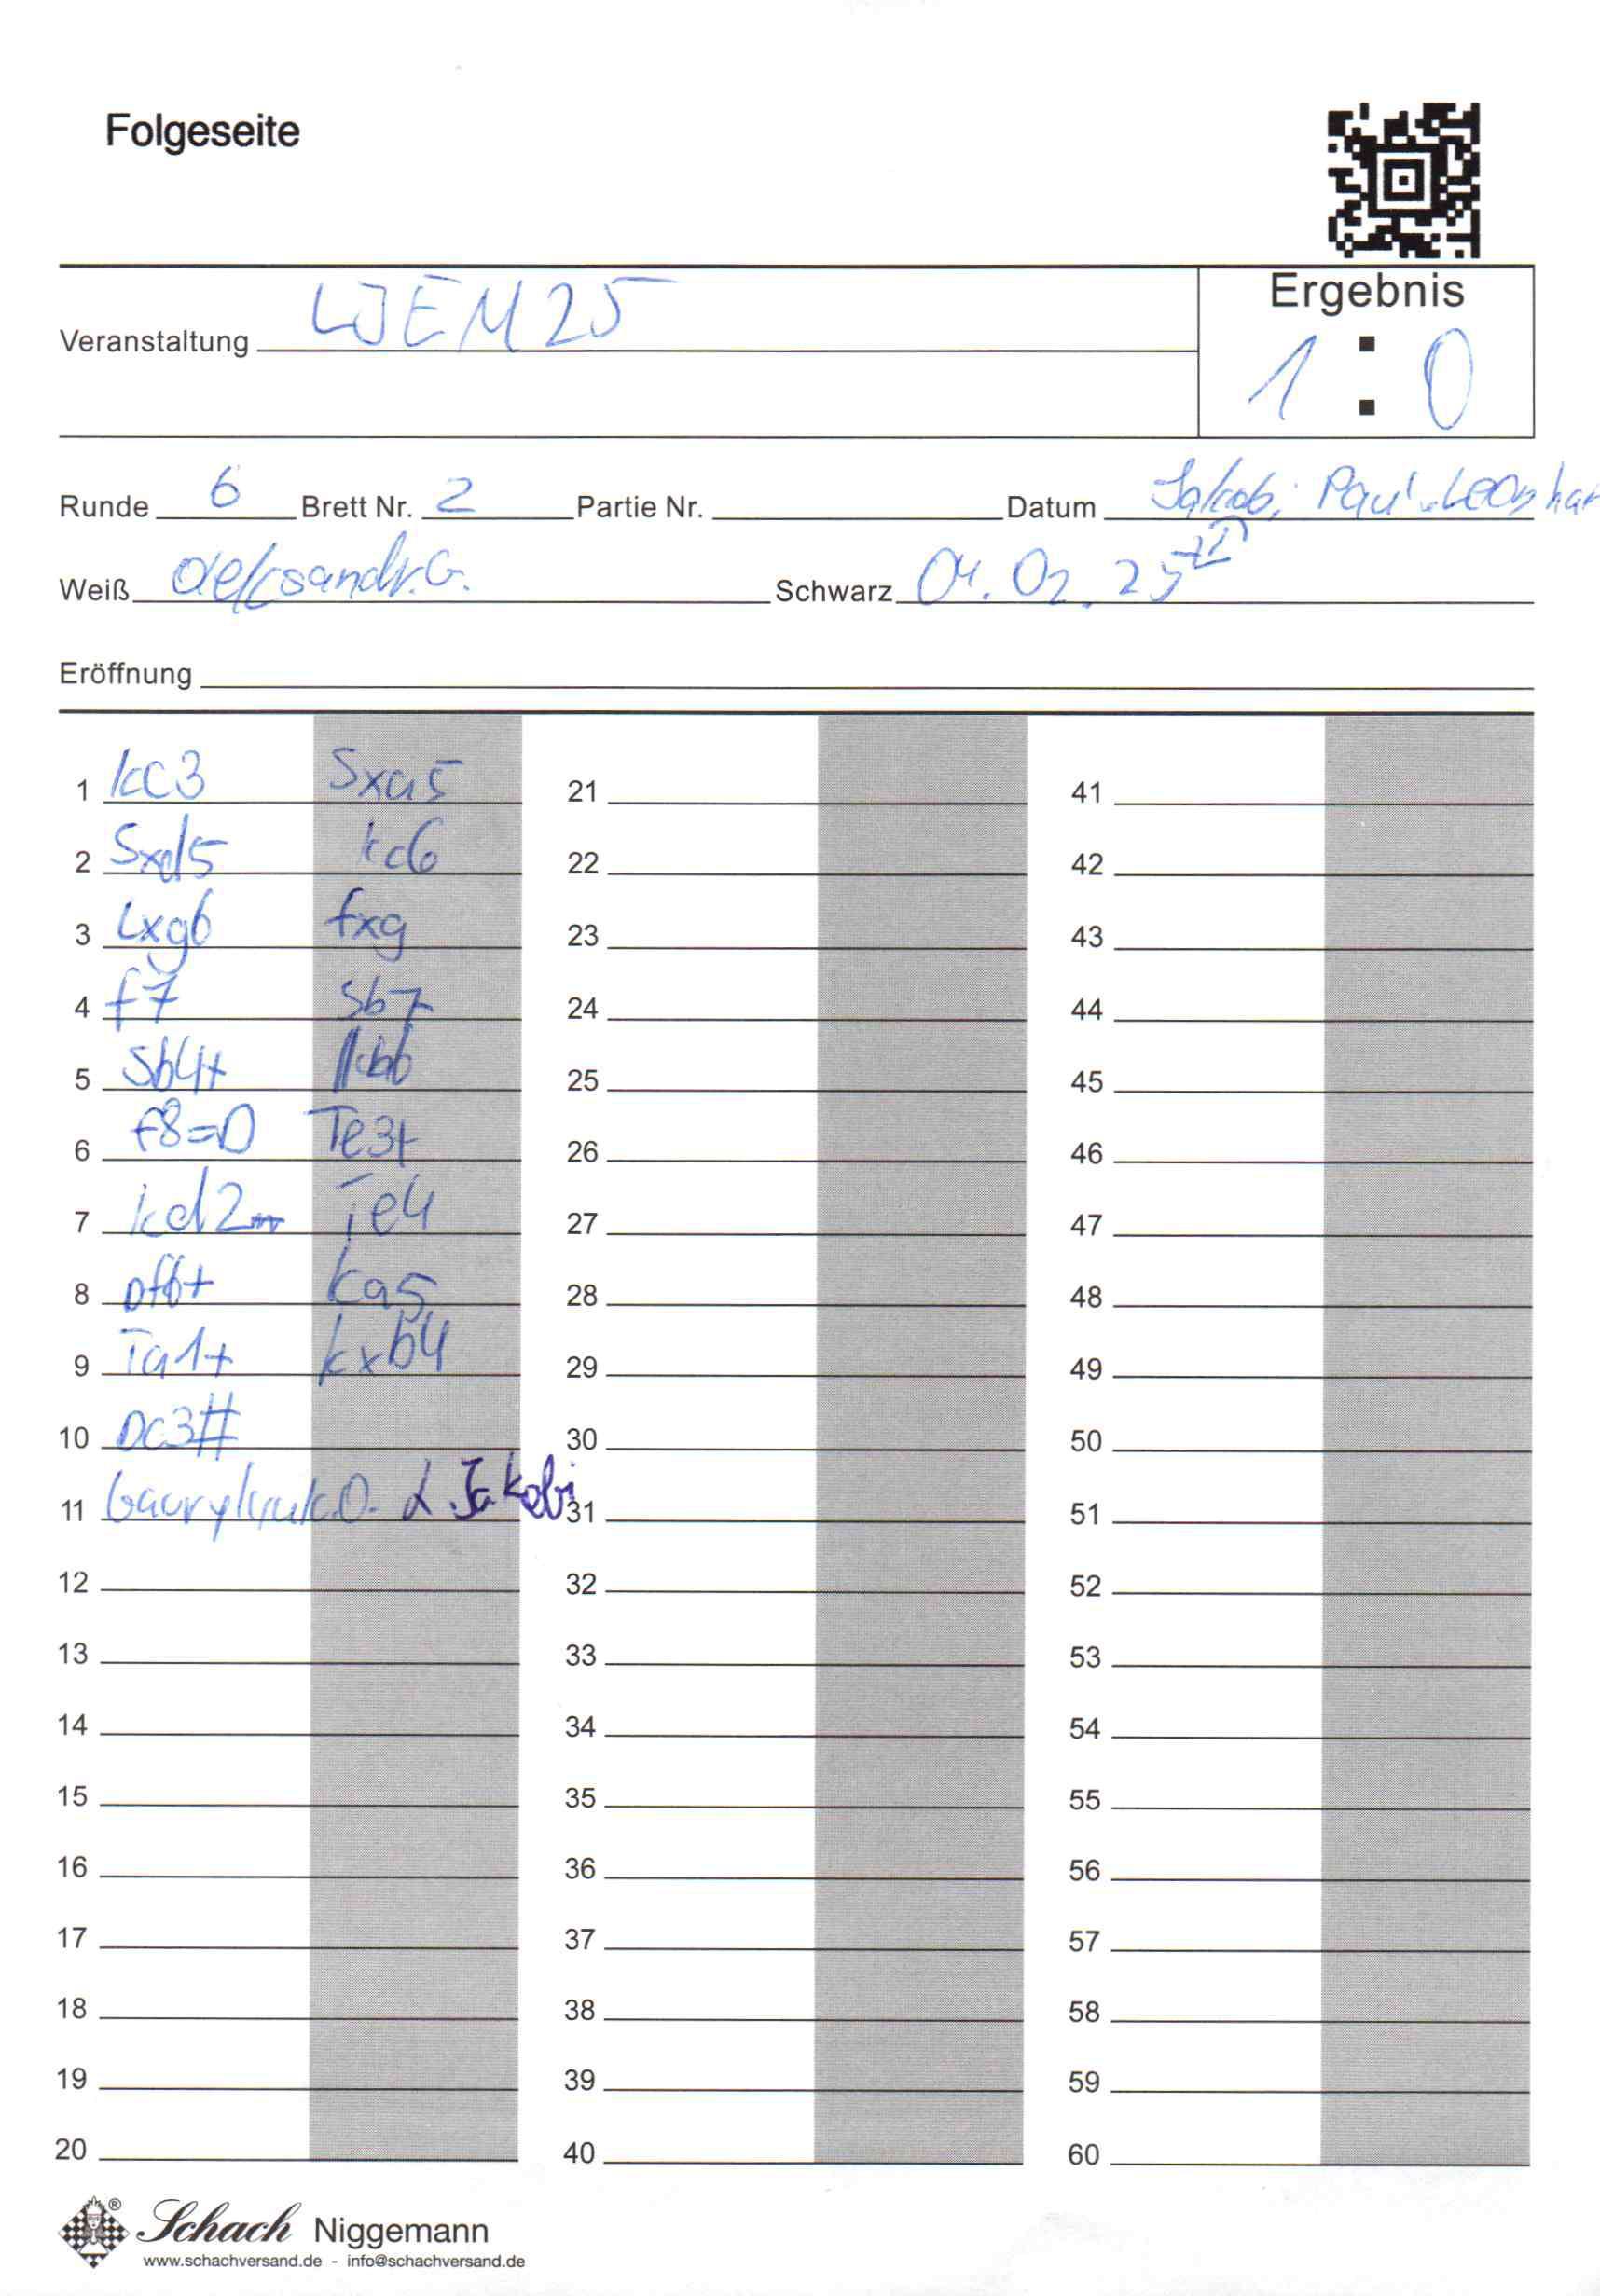 Folgeseite
Veranstaltung LJEM25
Ergebnis
1 : 0
Runde 6 Brett Nr. 2 Partie Nr. Datum Jakobi, Paul-Leonhar
Weiß Oleksandr.G. Schwarz 04.02.25
Eröffnung
1 kc3 Sxa5 21 41
2 Sxd5 kc6 22 42
3 Lxg6 fxg 23 43
4 f7 Sb7 24 44
5 Sb4+ kb6 25 45
6 f8=D Te3+ 26 46
7 kd2 Te4 27 47
8 Df6+ ka5 28 48
9 Ta1+ kxb4 29 49
10 Dc3# 30 50
11 L. Jakobi 31 51
12 32 52
13 33 53
14 34 54
15 35 55
16 36 56
17 37 57
18 38 58
19 39 59
20 40 60
® Schach Niggemann
www.schachversand.de - info@schachversand.de